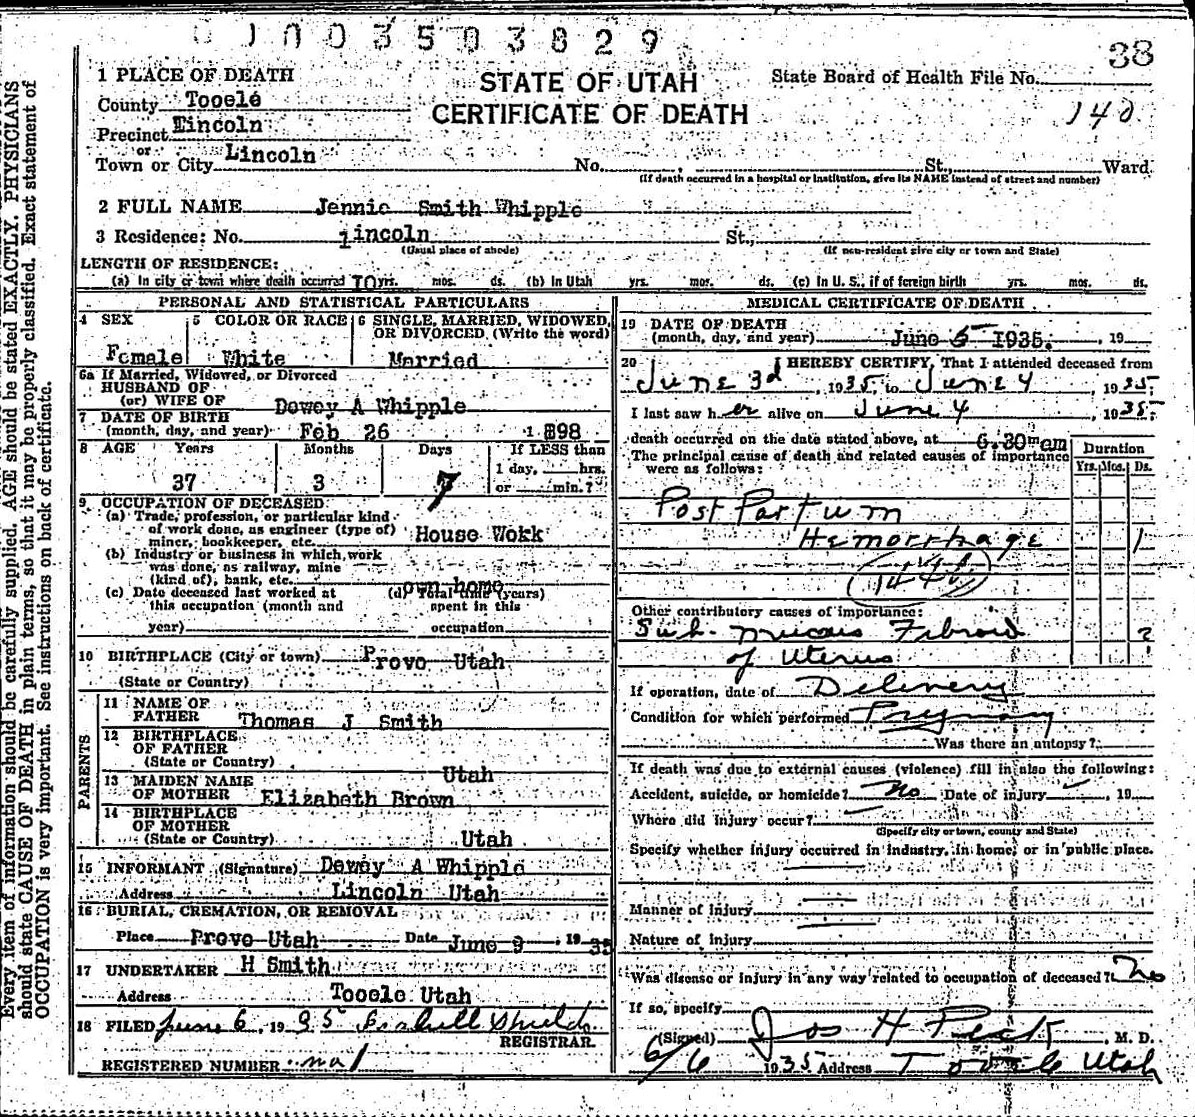 0 1 0 0 3 5 0 3 8 2 9
38
1 PLACE OF DEATH
STATE OF UTAH
State Board of Health File No.
County Tooele
CERTIFICATE OF DEATH
140
Precinct Lincoln
or
Town or City Lincoln No. St., Ward
(If death occurred in a hospital or institution, give its NAME instead of street and number)
2 FULL NAME Jennie Smith Whipple
3 Residence: No. Lincoln St.,
(Usual place of abode) (If non-resident give city or town and State)
LENGTH OF RESIDENCE:
(a) In city or town where death occurred 10 yrs. mos. ds. (b) In Utah yrs. mos. ds. (c) In U. S., if of foreign birth yrs. mos. ds.
PERSONAL AND STATISTICAL PARTICULARS
4 SEX 5 COLOR OR RACE 6 SINGLE, MARRIED, WIDOWED,
OR DIVORCED (Write the word)
Female White Married
6a If Married, Widowed, or Divorced
HUSBAND OF
(or) WIFE OF Dewey A Whipple
7 DATE OF BIRTH
(month, day, and year) Feb 26 1898
8 AGE Years Months Days If LESS than
1 day, hrs.
37 3 7 or min.?
9 OCCUPATION OF DECEASED:
(a) Trade, profession, or particular kind
of work done, as engineer (type of)
miner, bookkeeper, etc. House Wokk
(b) Industry or business in which work
was done, as railway, mine
(kind of), bank, etc. own home
(c) Date deceased last worked at (d) Total time (years)
this occupation (month and spent in this
year) occupation
10 BIRTHPLACE (City or town) Provo Utah
(State or Country)
PARENTS
11 NAME OF
FATHER Thomas J Smith
12 BIRTHPLACE
OF FATHER
(State or Country) Utah
13 MAIDEN NAME
OF MOTHER Elizabeth Brown
14 BIRTHPLACE
OF MOTHER
(State or Country) Utah
15 INFORMANT (Signature) Dewey A Whipple
Address Lincoln Utah
16 BURIAL, CREMATION, OR REMOVAL
Place Provo Utah Date June 9 1935
17 UNDERTAKER H Smith
Address Tooele Utah
18 FILED June 6, 1935 Shields
REGISTRAR.
REGISTERED NUMBER no 1
MEDICAL CERTIFICATE OF DEATH
19 DATE OF DEATH
(month, day, and year) June 5 1935. , 19
20 I HEREBY CERTIFY, That I attended deceased from
June 3d, 1935, to June 4, 1935.
I last saw her alive on June 4, 1935.
death occurred on the date stated above, at 6.30 m am
The principal cause of death and related causes of importance
were as follows:
Duration
Yrs. Mos. Ds.
Post Partum
Hemorrhage 1
Other contributory causes of importance:
Sub. mucous Fibroid ?
of Uterus
If operation, date of Delivery
Condition for which performed Pregnancy
Was there an autopsy?
If death was due to external causes (violence) fill in also the following:
Accident, suicide, or homicide? No Date of injury , 19
Where did injury occur?
(Specify city or town, county and State)
Specify whether injury occurred in industry, in home, or in public place.
Manner of injury
Nature of injury
Was disease or injury in any way related to occupation of deceased? No
If so, specify
(Signed) Jos H Peck, M. D.
6/6 1935 Address Tooele Utah
Every item of information should be carefully supplied. AGE should be stated EXACTLY. PHYSICIANS
should state CAUSE OF DEATH in plain terms, so that it may be properly classified. Exact statement of
OCCUPATION is very important. See instructions on back of certificate.